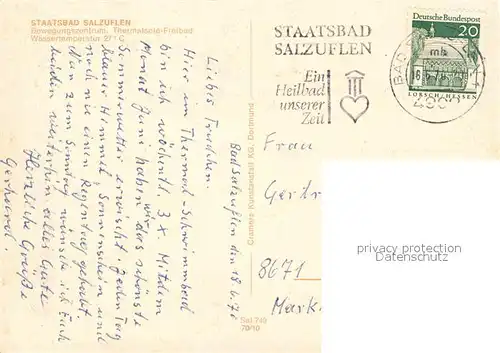 STAATSBAD SALZUFLEN
Bewegungszentrum, Thermalsole-Freibad
Wassertemperatur 27° C
Bad Salzuflen den 18.6.70
Liebes Trudchen.
Hier im Thermal-Schwimmbad
bin ich wöchentl. 3 x. Mit dem
Monat Juni habn wir das schönste
Sommerwetter erwischt. Jeden Tag
blauer Himmel, Sonnenschein und
noch nie einen Regentag gehabt.
Nun zum Sonntag wünsche ich Euch
beiden weiterhin alles Gute
Herzliche Grüße
Gerhard.
Cramers Kunstanstalt KG, Dortmund
Sal 749
70/10
STAATSBAD
SALZUFLEN
Ein
Heilbad
unserer
Zeit
BAD
mb
18.6.70
Deutsche Bundespost
20
LORSCH/HESSEN
Frau
Gertr
8671
Mark
privacy protection
Datenschutz